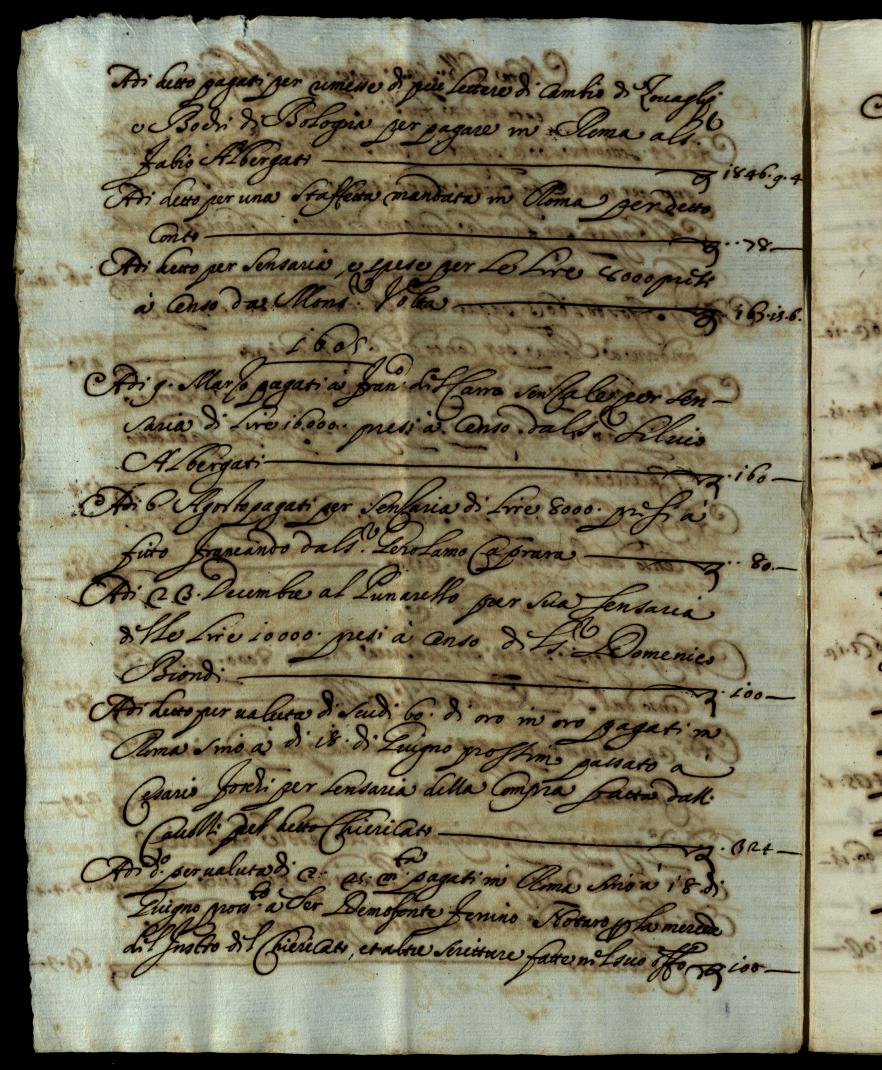 Adi detto pagati per rimesse di più lettere di Cambio di Zouaglij
e Bodri di Bologna per pagare in Roma al S.r
Fabio Albergati 1846.9.4
Adi detto per una staffetta mandata in Roma per detto
Conto 78
Adi detto per sensaria, e spese per le lire 8000 presi
à Censo da Mons.r Volta 163.15.6.
1605.
Adi 9. Marzo pagati à Fran.o del Carro sensale per sen-
saria di lire 16000. presi à Censo dal S.r Siluio
Albergati 160
Adi 6 Agosto pagati per sensaria di lire 8000. presi à
fito francando dal S.r Gerolamo Caprara 80.
Adi 23. Decembre al Lunarello per sua sensaria
delle lire 10000. presi à Censo del S.r Domenico
Biondi 100
Adi detto per valuta di scudi 60. di oro in oro pagati in
Roma sino à di 18. di Giugno prossim passato à
Cesare per sensaria della Compra fatta dall.
Cauolli del detto Chiericato 324
Adi d.o per valuta di pagati in Roma sino à 18 di
Giugno pross.to à Ser Demofonte Ferrino Notaro p la mercede
dell Instro del Chiericato, et altre scritture fatte nel suo offo 108